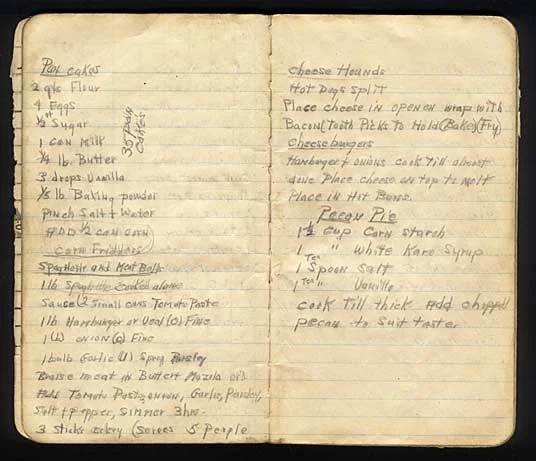 Pan cakes
2 qts Flour
4 Eggs
1/2 Sugar
1 can milk
1/4 lb. Butter
3 drops Vanilla
1/3 lb Baking powder
pinch Salt & Water
35 pan cakes
ADD 1/2 can corn
corn Fridders
Spaghettie and Meat Balls
1 lb Spaghettie cooked alone
Sause (2 Small cans Tomato Paste
1 lb Hamburger or Veal (G) Fine
1 (L) onion (G) Fine
1 bulb Garlic (1) Sprig Parsley
Braise meat in Butter & Mazola oil
Add Tomato Paste, onion, Garlic, Parsley,
Salt & Pepper, Simmer 3 hrs.
3 Sticks celery (serves 5 People
Cheese Hounds
Hot Dogs Split
Place cheese in open en wrap with
Bacon (Tooth Picks To Hold (Bake) (Fry)
Cheeseburgers
Hamburger & onions cook Till almost
done Place cheese on top to melt
Place in Hot Buns.
Pecan Pie
1 1/2 Cup Corn starch
1 " White Karo Syrup
1 Tea Spoon Salt
1 Tea " Vanilla
cook Till thick Add chopped
pecan to Suit taster